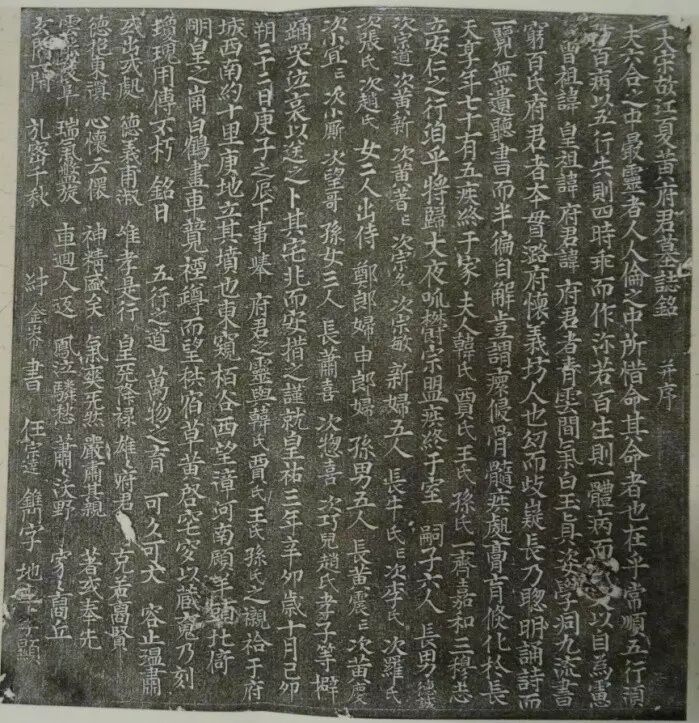 大宋故江夏黄府君墓誌銘 并序
夫六合之中最靈者人人倫之中所惜命其命者也在乎常順五行須
百病以五行失則四時乖而作沵若百生則一體病而 又以自為憲
曾祖諱 皇祖諱 府君諱 府君者青雲間氣白玉真姿學洞九流書
窮百氏府君者本貫潞府懷義坊人也幼而歧嶷長乃聦明誦詩而
一覽無遺聽書而半徧自解豈謂瘭慢骨髓疾處膏肓倏化於長
天享年七十有五疾終于家夫人韓氏賈氏王氏孫氏一齊嘉和三穆恭
立安仁之行洎乎將歸大夜吼 宗盟疾終于室 嗣子六人 長男德誠
次宗道 次黄新 次黄著 次宗 次宗敏 新婦五人 長牛氏 次李氏 次羅氏
次張氏 次趙氏 女二人出侍 鄭郎婦 申郎婦 孫男五人 長黄震 次黄慶
次小宜 次小厮 次望哥 孫女三人 長蕭喜 次惣喜 次巧兒趙氏孝子等擗
踊哭泣哀以送之卜其宅兆而安措之謹就皇祐三年辛卯歲十月己卯
朔二十二日庚子之辰下事塟 府君之靈與韓氏賈氏王氏孫氏之櫬祫于府
城西南約十里庚地立其墳也東窺栢谷西望漳河南顧羊頭北倚
明皇之崗白鶴畫車 裡蹲而望秩宿草黄啓宅安以藏寃乃刻
瓊琨用傳不朽 銘曰 五行之道 萬物之育 可久可大 容止温肅
或出或處 德義甫淑 雄孝是行 皇丕降禄 雄雄府君 克若高賢
德抱東溟 心懷云儇 神精盛矣 氣爽 然 嚴肅其親 著或奉先
雲 皐 瑞氣盤旋 車迴人返 鳳泣驎愁 蕭蕭沃野 寥寥商丘
隋 扎密千秋 書 任宗逵 鐫字